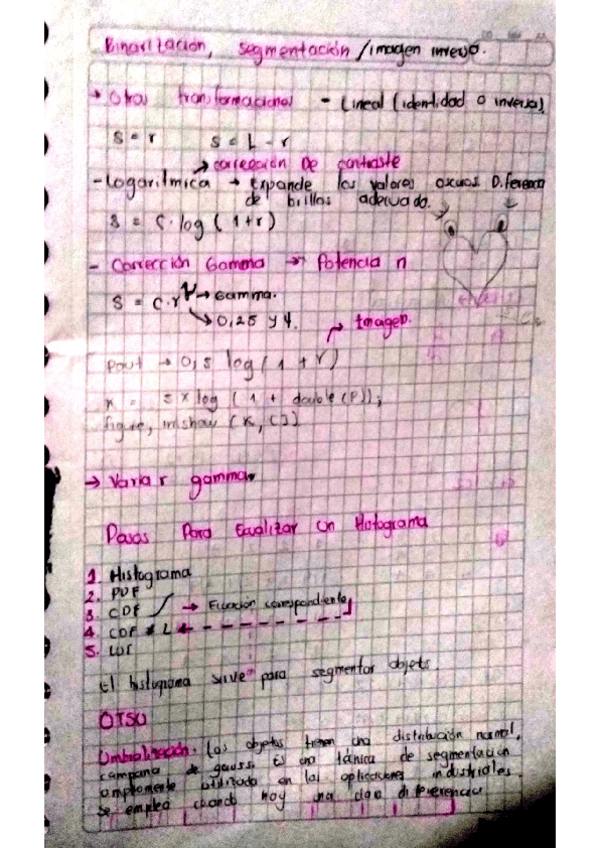 Binarización, segmentación / imagen inversa.
→ Otras transformaciones - Lineal (identidad o inversa)
S = r S = L - r
→ corrección De contraste
- Logarítmica → Expande los valores oscuros Diferencia
de brillos adecuado.
S = C · log ( 1 + r )
- Corrección Gamma → Potencia n
S = C · r^γ → Gamma.
→ 0,25 y 4. → Imagen.
Pout → 0,5 log ( 1 + r )
K = log ( 1 + double (P));
figure, imshow (K, [])
→ Variar gamma.
Pasos Para Ecualizar un Histograma
1. Histograma
2. PDF
3. CDF → Ecuación correspondiente
4. CDF * L
5. LUT
El histograma sirve para segmentar objets.
OTSU
Umbralización. Los objetos tienen una distribución normal,
campana de gauss. Es una técnica de segmentación
ampliamente utilizada en las aplicaciones industriales.
Se emplea cuando hay una clara diferencia